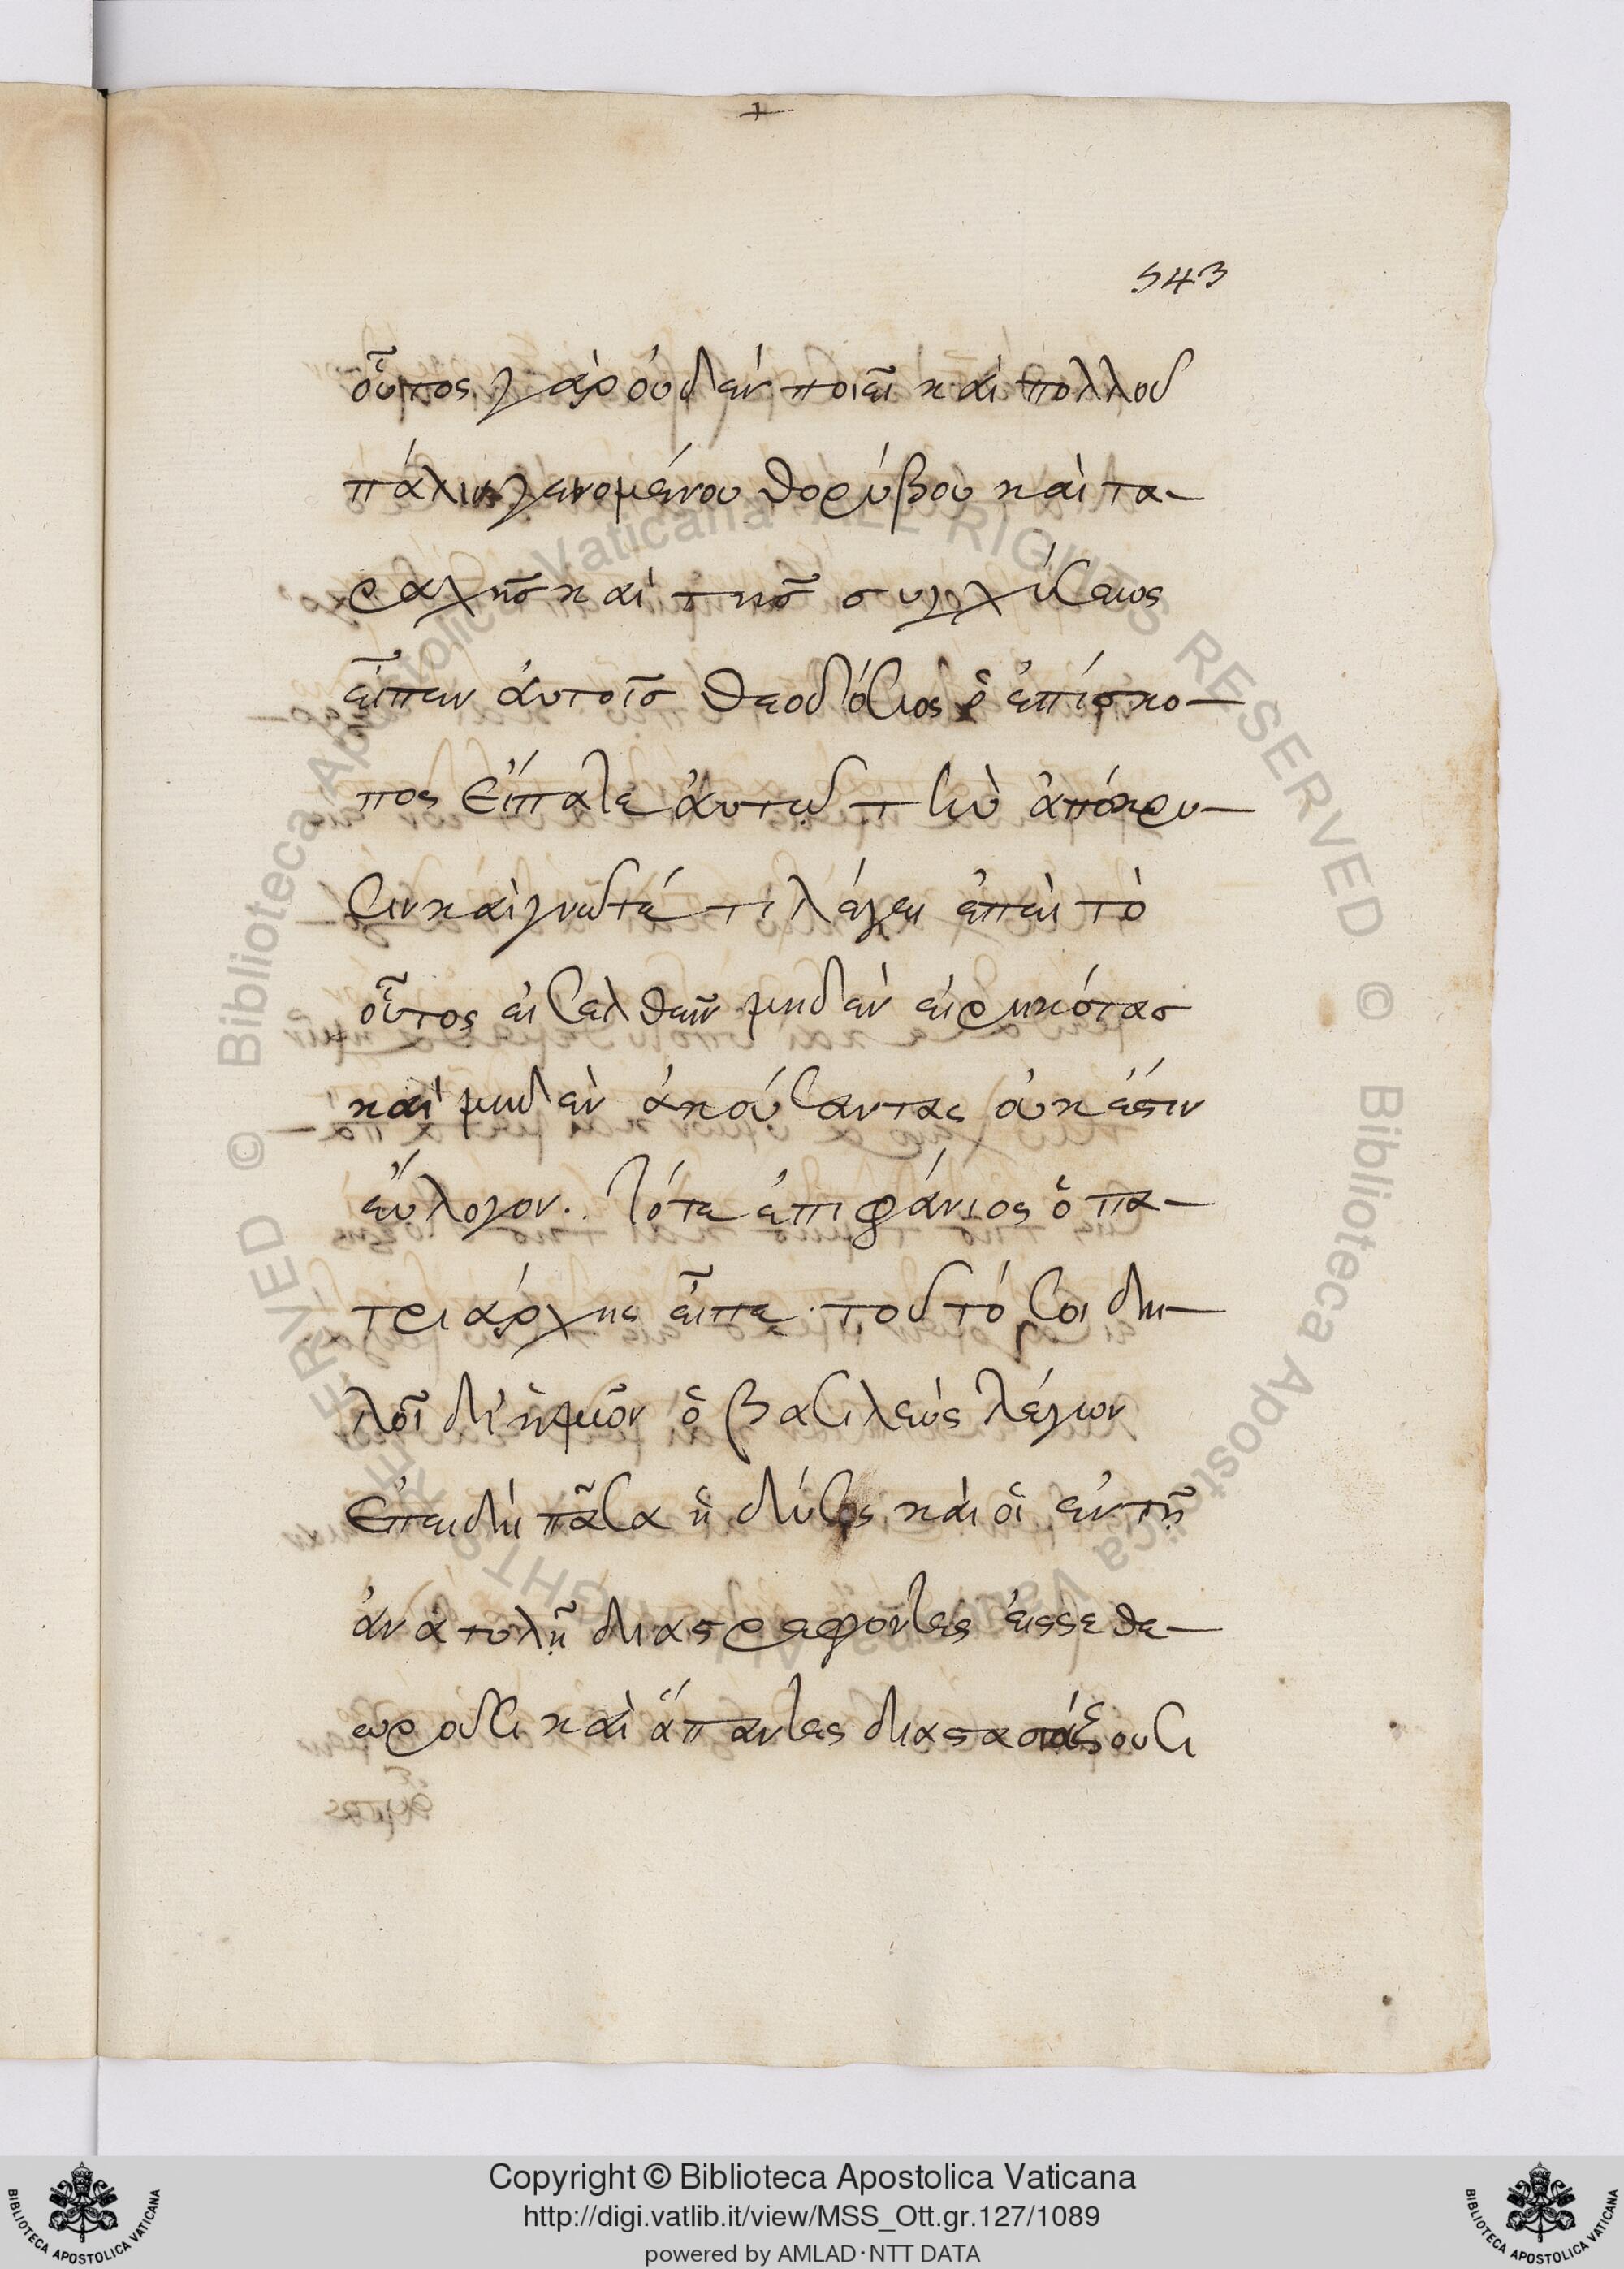 543
οὗτος γὰρ οὐδὲν ποιεῖ καὶ πολλοῦ
πάλιν γενομένου θορύβου καὶ τα-
ραχῆς καὶ τῆς συγχύσεως
εἶπεν ἀυτοῖς Θεοδόσιος ὁ ἐπίσκο-
πος Εἴπατε ἀυτῷ τὴν ἀπόκρι-
σιν καὶ γνῶτέ τι λέγει ἐπεὶ τὸ
οὗτος εἰσελθεῖν μηδὲν εἰρηκότας
καὶ μηδὲν ἀκούσαντας οὐκ ἔστιν
εὔλογον. Τότε ἐπιφάνιος ὁ πα-
τριάρχης εἶπε τοῦτό σοι δη-
λοῖ δι' ἡμῶν ὁ βασιλεὺς λέγων
Ἐπειδὴ πᾶσα ἡ δύσις καὶ οἱ ἐν τῇ
ἀνατολῇ διαστρεφοντες εἰς σε θε-
ωροῦσι καὶ ἅπαντες
Copyright © Biblioteca Apostolica Vaticana
http://digi.vatlib.it/view/MSS_Ott.gr.127/1089
powered by AMLAD·NTT DATA
BIBLIOTECA APOSTOLICA VATICANA
BIBLIOTECA APOSTOLICA VATICANA